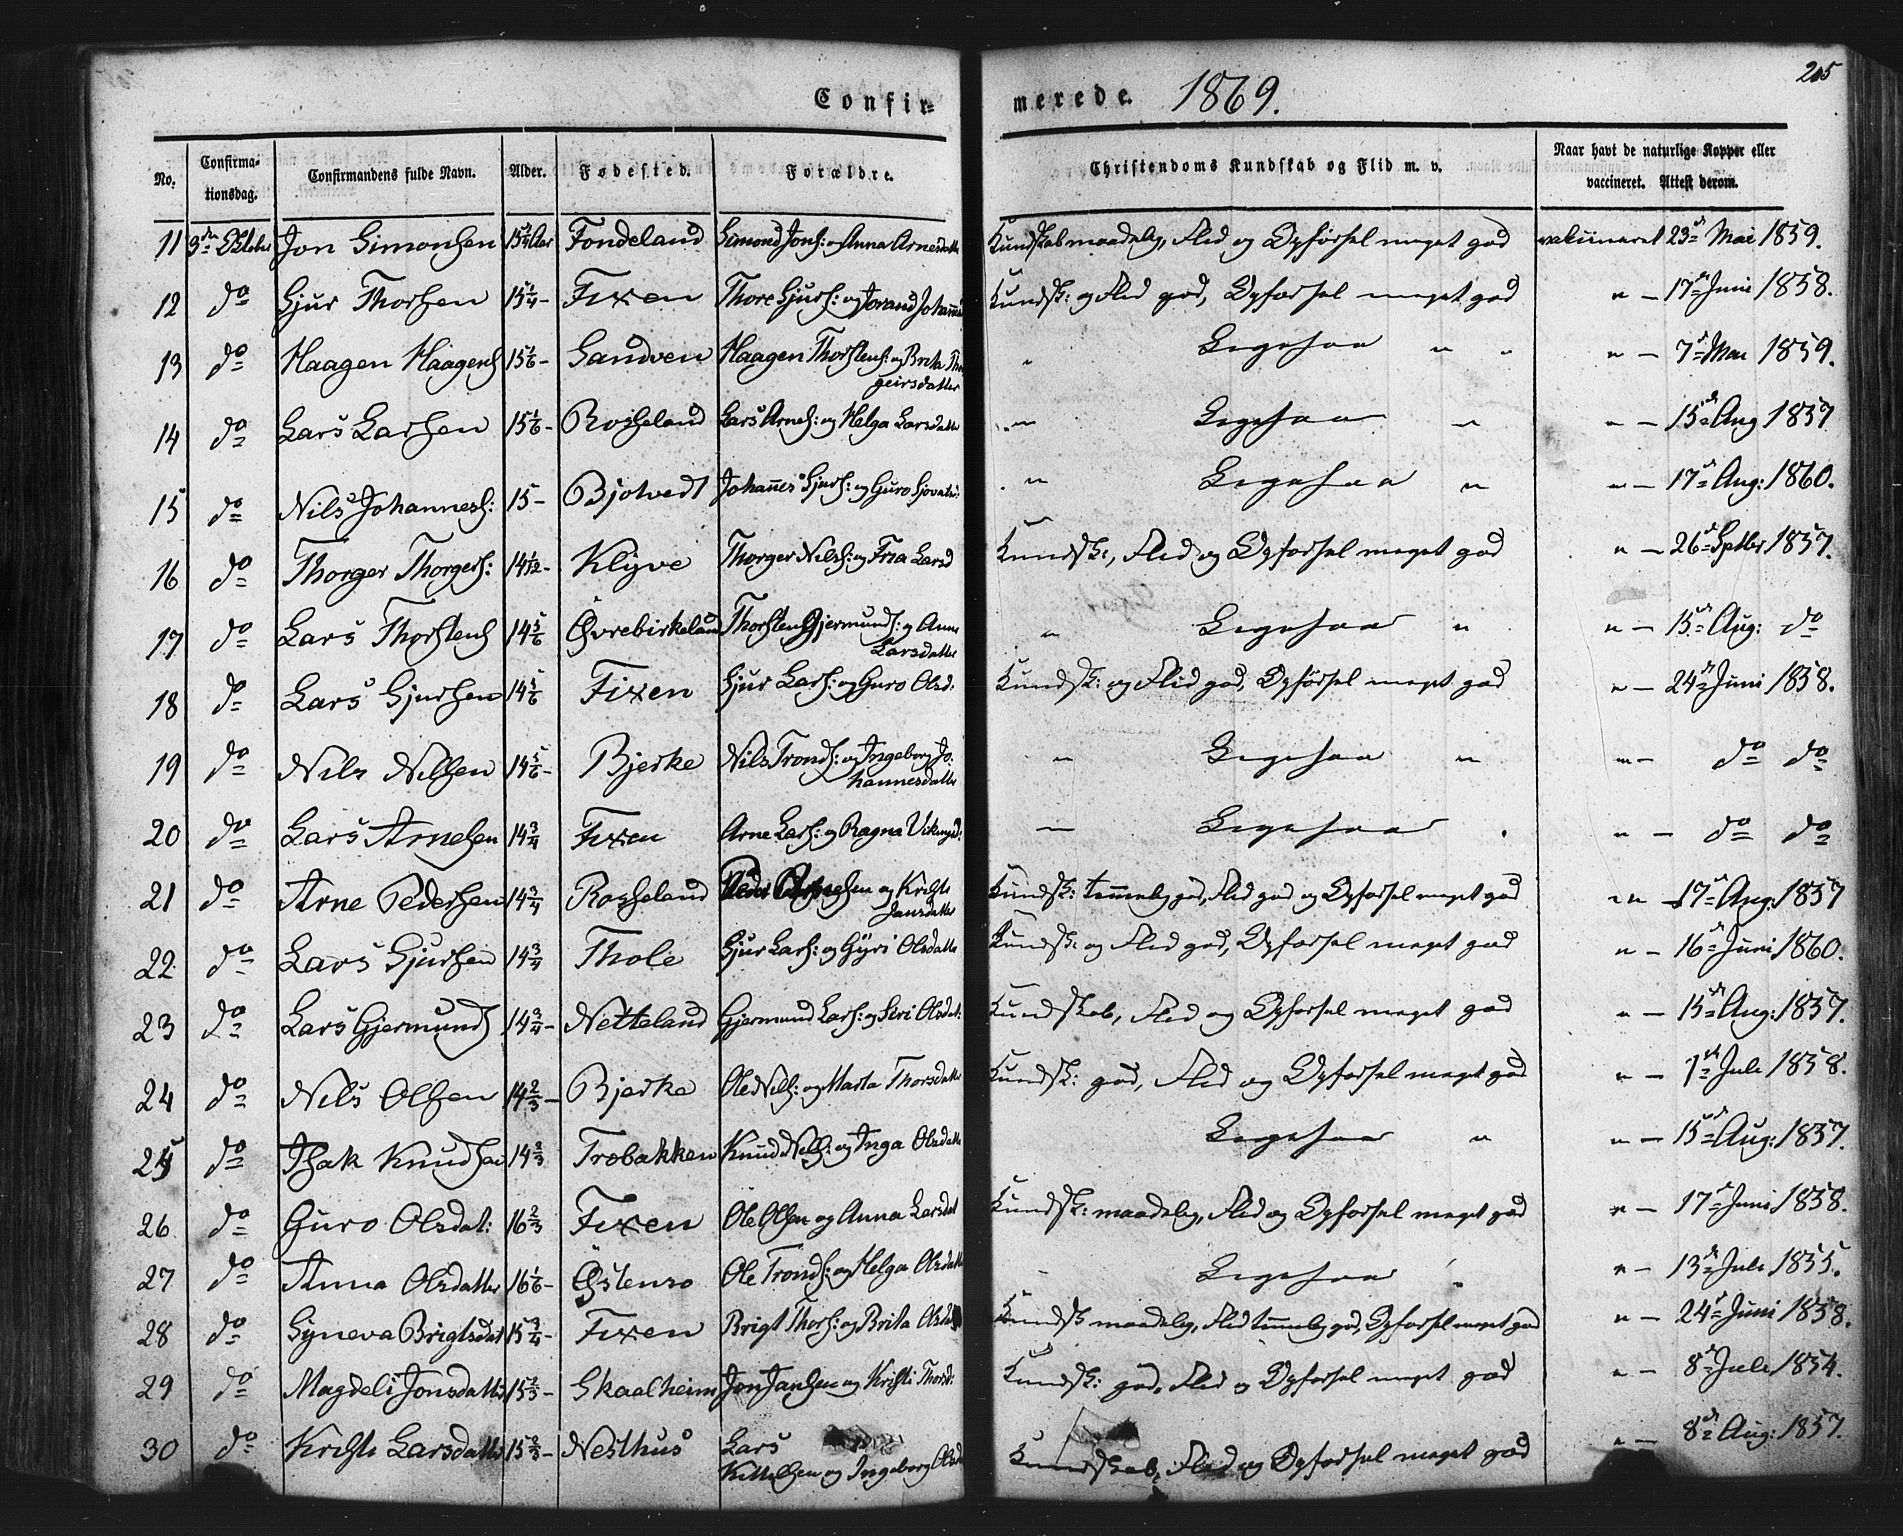 Confir-
merede. 1869.
205
No.
Confirma-
tionsdag.
Confirmandens fulde Navn.
Alder.
Fødested.
Forældre.
Christendoms Kundskab og Flid m. v.
Naar havt de naturlige Kopper eller
vaccineret. Attest derom.
11 3die Oktober Jon Simonsen Aar Fondeland Simond Jons: og Anna Arnesdatter Kundskab maadelig, Flid og Opførsel meget god vakcineret 23de Mai 1859.
12 do Sjur Thorsen 15 1/4 - Fixen Thore Sjurs: og Jorand Kundsk: og Flid god, Opførsel meget god " - 17de Juni 1858.
13 do Haagen Haagens 15 1/6 - Sandven Haagen Thorstens: og Brita Thor
geirsdatter " Ligesaa " " " - 7de Mai 1859.
14 do Lars Larsen 15 1/6 - Rosseland Lars Arnes: og Helga Larsdatter " Ligesaa " " - 15de Aug 1857
15 do Nils Johanness: 15 - Bjotvedt Johannes Sjurs: og Guro " Ligesaa " " - 17de Aug: 1860.
16 do Thorger Thorgers: 14 1/12 - Klyve Thorger Nils: og Larsd Kundsk:, Flid og Opførsel meget god " - 26de Septbr 1857.
17 do Lars Thorstens 14 5/6 Øvrebirkeland Thorsten Gjermunds: og Anna
Larsdatter " Ligesaa " " - 15de Aug: do
18 do Lars Sjursen 14 5/6 Fixen Sjur Lars: og Guro Olsd. Kundsk: og Flid god, Opførsel meget god " - 24de Juni 1858.
19 do Nils Nilsen 14 5/6 - Bjerke Nils Tronds: og Ingeborg Jo-
hannesdatter " Ligesaa " " - do do
20 do Lars Arnesen 14 3/4 Fixen Arne Lars: og Ragna Vikingsd: " Ligesaa " " - do do
21 do Arne Pedersen 14 3/4 Rosseland og Kristi
Jansdatter Kundsk: temmelig god, Flid god og Opførsel meget god " " 17de Aug: 1857
22 do Lars Sjursen 14 3/4 Thole Sjur Lars: og Gyri Olsdatter Kundsk: og Flid god, Opførsel meget god " - 16de Juni 1860.
23 do Lars Gjermunds 14 3/4 - Netteland Gjermund Lars: og Siri Olsdat: Kundskab, Flid og Opførsel meget god " - 15de Aug: 1857.
24 do Nils Olsen 14 2/3 - Bjerke Ole Nils: og Marta Thorsdatter Kundsk: god, Flid og Opførsel meget god " - 1ste Juli 1858.
25 do Isak Knudsen 14 2/3 Trobakken Knud Nils: og Inga Olsdatter Ligesaa " " - 15de Aug: 1857.
26 do Guro Olsdat: 16 2/3 Fixen Ole Olsen og Anna Larsdat Kundsk: maadelig, Flid og Opførsel meget god " - 17de Juni 1858.
27 do Anna Olsdatter 16 1/6 - Østensø Ole Tronds: og Helga Olsdatter " Ligesaa " " - 13de Juli 1855.
28 do Syneva Brigtsdat 15 3/4 - Fixen Brigt Thors: og Brita Olsdat Kundsk maadelig, Flid temmelig god, Opførsel meget god " - 24de Juni 1858.
29 do Magdeli Jonsdatter 15 2/3 - Skaalheim Jon Jansen og Kristi Thorsd: Kundsk: god, Flid og Opførsel meget god " - 8de Juli 1854.
30 do Kristi Larsdatter 15 2/3 - Nesthus Lars
Kittelsen og Ingeborg Olsd Kundskab, Flid og Opførsel meget god " - 8de Aug: 1857.